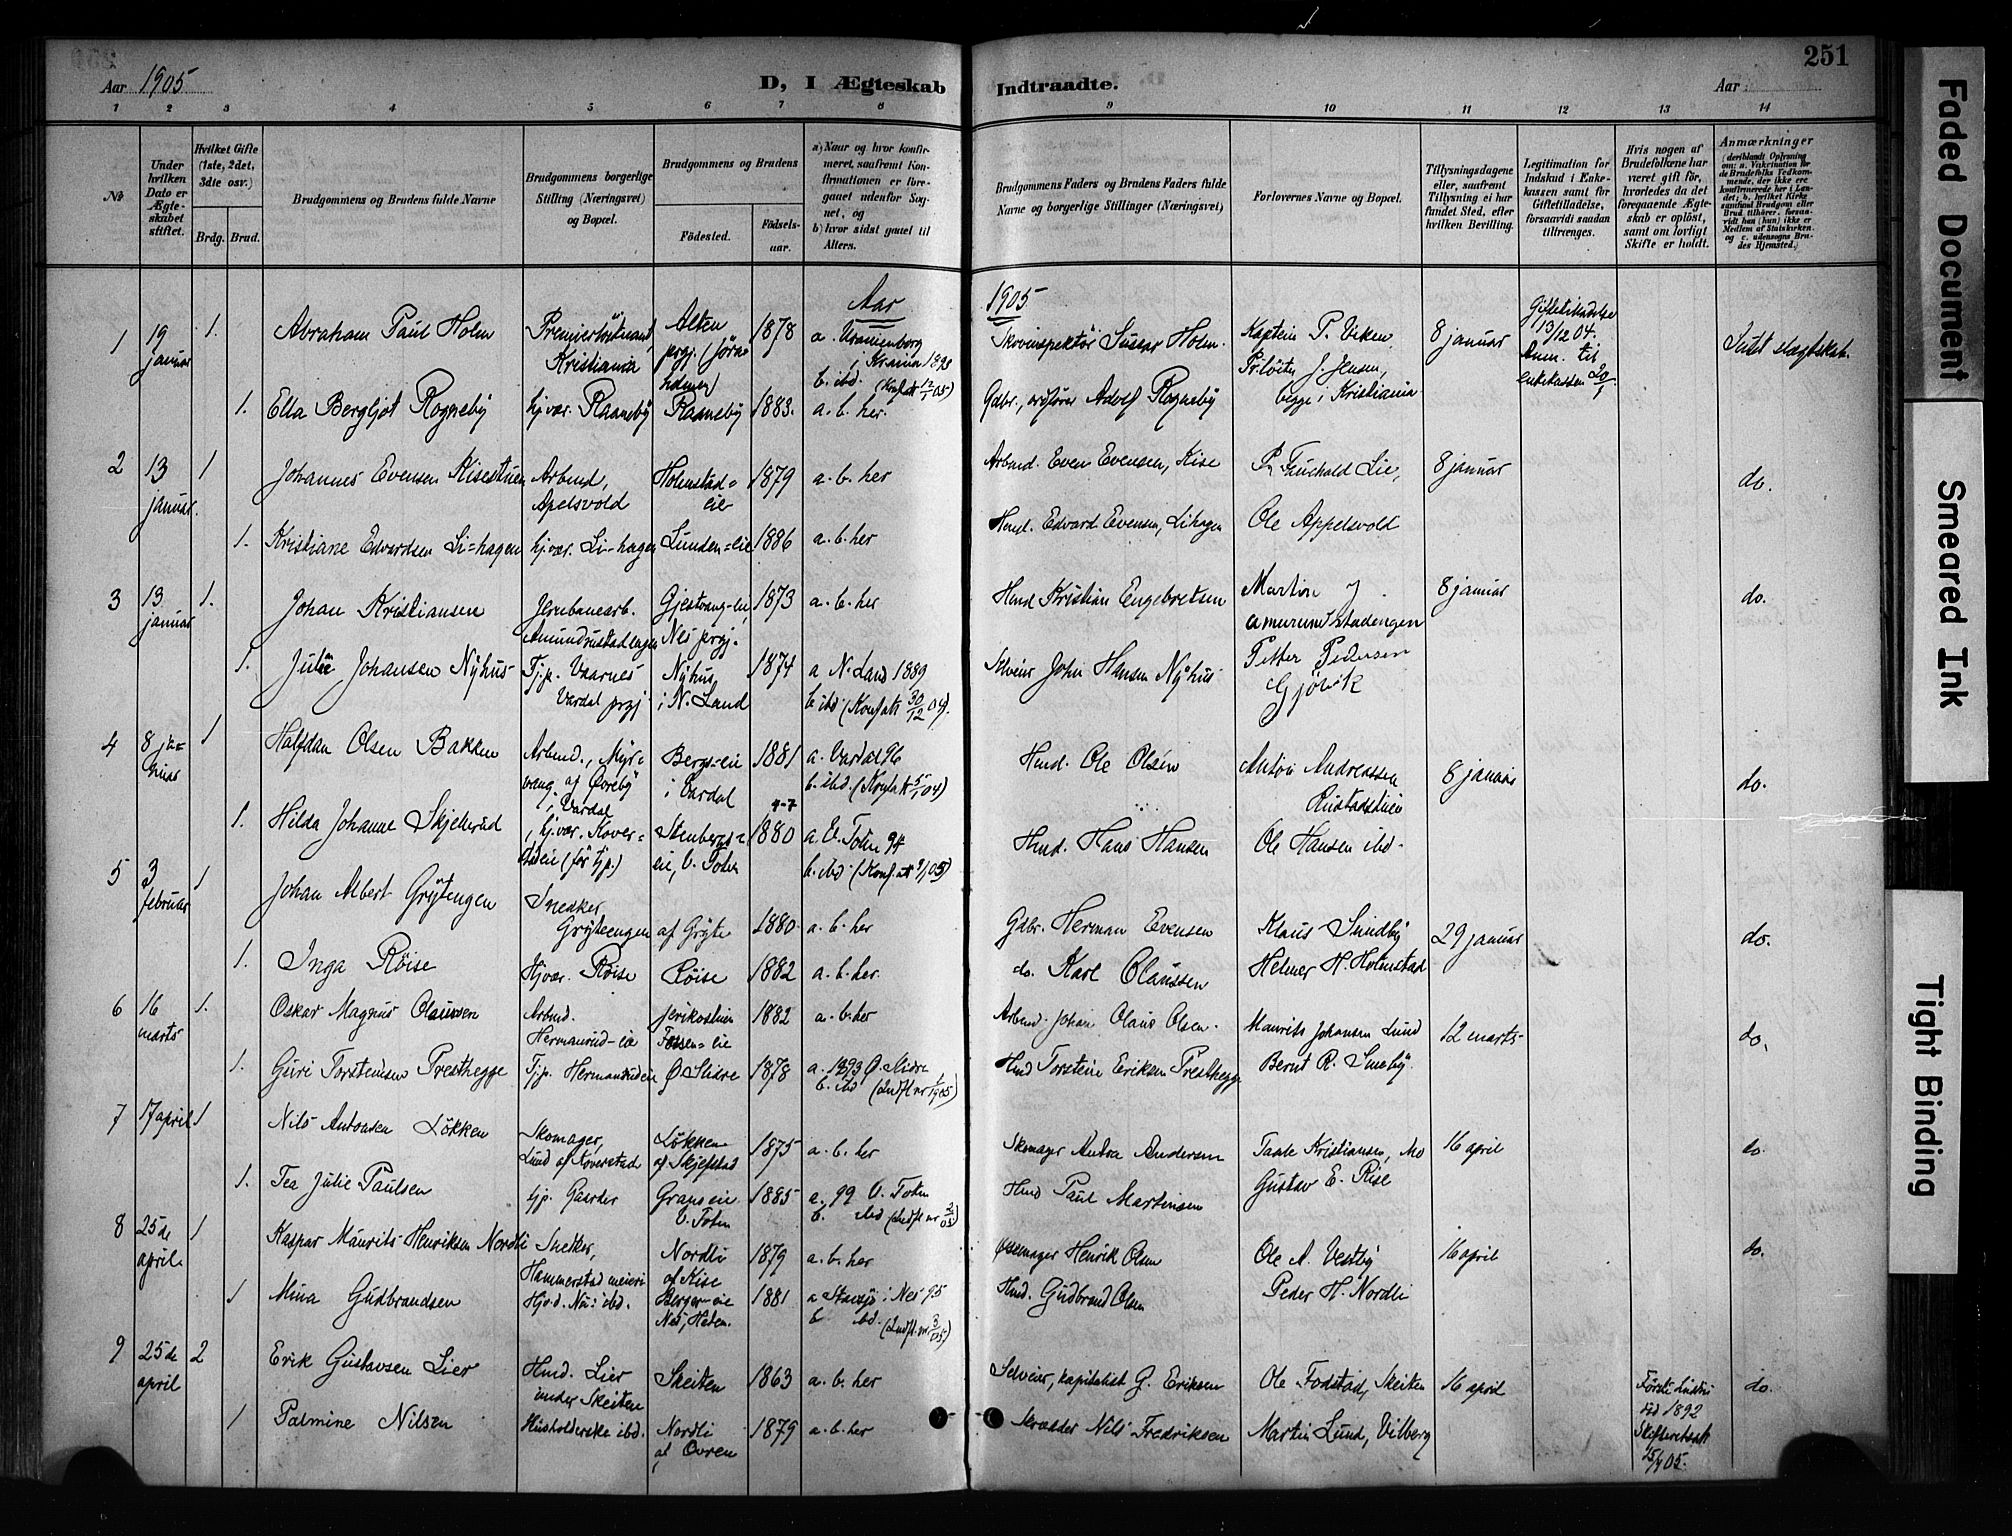 251
Aar 1905
D, I Ægteskab Indtraadte.
Aar
1 2 3 4 5 6 7 8 9 10 11 12 13 14
No
Under hvilken Dato er Ægteskabet stiftet.
Hvilket Gifte (1ste, 2det, 3die osv.)
Brdg. Brud.
Brudgommens og Brudens fulde Navne
Brudgommens borgerlige Stilling (Næringsvei) og Bopæl.
Brudgommens og Brudens
Fødested. Fødselsaar.
a) Naar og hvor konfirmeret, saafremt Konfirmationen er foregaaet udenfor Sognet, og
b) hvor sidst gaaet til Alters.
Brudgommens Faders og Brudens Faders fulde Navne og borgerlige Stillinger (Næringsvei)
Forlovernes Navne og Bopæl.
Tillysningsdagene eller, saafremt Tillysning ei har fundet Sted, efter hvilken Bevilling.
Legitimation for Indskud i Enkekassen samt for Giftetilladelse, forsaavidt saadan tiltrænges.
Hvis nogen af Brudefolkene har været gift før, hvorledes da det foregaaende Ægteskab er opløst, samt om lovligt Skifte er holdt.
Anmærkninger
(deriblandt Oplysning om: a. Vakcination for de Brudefolks Vedkommende, der ikke ere konfirmerede her i Landet; b. hvilket Kirkesamfund Brudgom eller Brud tilhører, forsaavidt han (hun) ikke er Medlem af Statskirken, og c. udensogns Brudes Hjemsted.)
Aar 1905
1 19 januar 1. Abraham Paul Holm Premierløitnant, Kristiania Alten prgj. 1878 a. Uranienborg i Krania 1893 b. ibd. (Konf.att 12/1 05) Skovinspektör Holm. Kaptein P. Viken Pr.löitn. J. Jensen, begge i Kristiania 8 januar Giftetilladelse 13/12 04. Anm. til enkekassen 20/1 Intet slægtskab.
1. Ella Bergljot Rogneby hj.vær. Raaneby Raaneby 1883. a. b. her. Gdbr., ordfører Adolf Rogneby
2 13 januar. 1 Johannes Evensen Kisestuen Arbmd, Apelsvold Holmstad=eie 1879 a. b. her Arbmd. Even Evensen, Kise P. Fauchald Lie, Ole Appelsvold 8 januar do.
1. Kristiane Edvardsen Li=hagen hj.vær. Li-hagen Lunden=eie 1886 a. b. her Hmd. Edvard Evensen, Lihagen
3 13 januar 1. Johan Kristiansen Jernbanearb. Amundrustadengen Gjestvang-eie, Nes prgj. 1873 a. b. her Hmd Kristian Engebretsen Martin J. Petter Pedersen Gjövik 8 januar do.
1. Julie Johansen Nyhus Tj.p. Vaarnes Vardal prgj Nyhus i N. Land 1874 a N. Land 1889 b ibd (Konf.att 30/12 04). Selveier John Hansen Nyhus
4 8 januar 1 Halfdan Olsen Bakken Arbmd., Myrvang af Övreby i Vardal Bergs=eie i Vardal 1881 a. Vardal 96 b. ibd. Hmd. Ole Olsen Anton Andreassen Rustadstuen 8 januar do.
1. Hilda Johanne Skjellerud hj.vær. (før tj.p.) Stenbergs=eie, V. Toten 4-7 1880 a. V. Toten 94 b. ibd (Konf.att 9/1 05) Hmd. Hans Hansen Ole Hansen ibd.
5 3 februar 1 Johan Albert Grytengen Snedker Gryteengen af Gryte 1880. a. b. her Gdbr. Herman Evensen Klaus Sundby 29 januar do.
1. Inga Röise Hjvær. Röise Röise 1882 a. b. her. do. Karl Claussen Helmer H. Holmstad
6 16 marts 1. Oskar Magnus Olaussen Arbmd. Hermanrud-eie Jerikostuen Fossen=eie 1882 a. b. her Arbmd. Johan Olaus Olsen. Maurits Johansen Lund 12 marts do.
1. Guri Torsteinsen Presthegge Tj.p. Hermanrudeie Ø Slidre 1878 a. 1893 Ø. Slidre b. ibd (Indfl nr 1/1905) Hmd Torstein Eriksen Presthegge Bernt R. Sneby.
7 17 april 1 Nils Antonsen Løkken Skomager, Lund af Koverstad Løkken af Skjelstad 1875 a. b. her Skomager Anton Andersen Taale Kristiansen, Mo 16 april do.
1. Tea Julie Paulsen tj.p. Gaarder V. Toten 1885 a. 99 V. Toten b. ibd (Indfl nr 2/05) Hmd Paul Martinsen Gustav E. Rise
8 25de april. 1 Kaspar Maurits Henriksen Nordli Snekker, Hammerstad meieri Nordli af Kise 1879 a. b. her Henrik Olsen Ole A. Vestby 16 april do.
1 Mina Gudbrandsen ibd. Berger=eie Nes, Hedm. 1881 a Stavsjö i Nes 95 b ibd. (Indfl. nr. 3/05) Hmd. Gudbrand Olsen Peder H. Nordli
9 25de april 2 Erik Gustavsen Lier Hmd. Lier under Skeiten Skeiten 1863 a. b. her Selveier, kapitalist G. Eriksen Ole Fodstad, Skeiten 16 april 1892 Skifteretsatt 15/4 05. do.
1 Palmine Nilsen Husholderske ibd. Nordli af Ovren 1879 a. b. her Skrædder Nils Fredriksen Martin Lund, Vilberg
Faded Document
Smeared Ink
Tight Binding